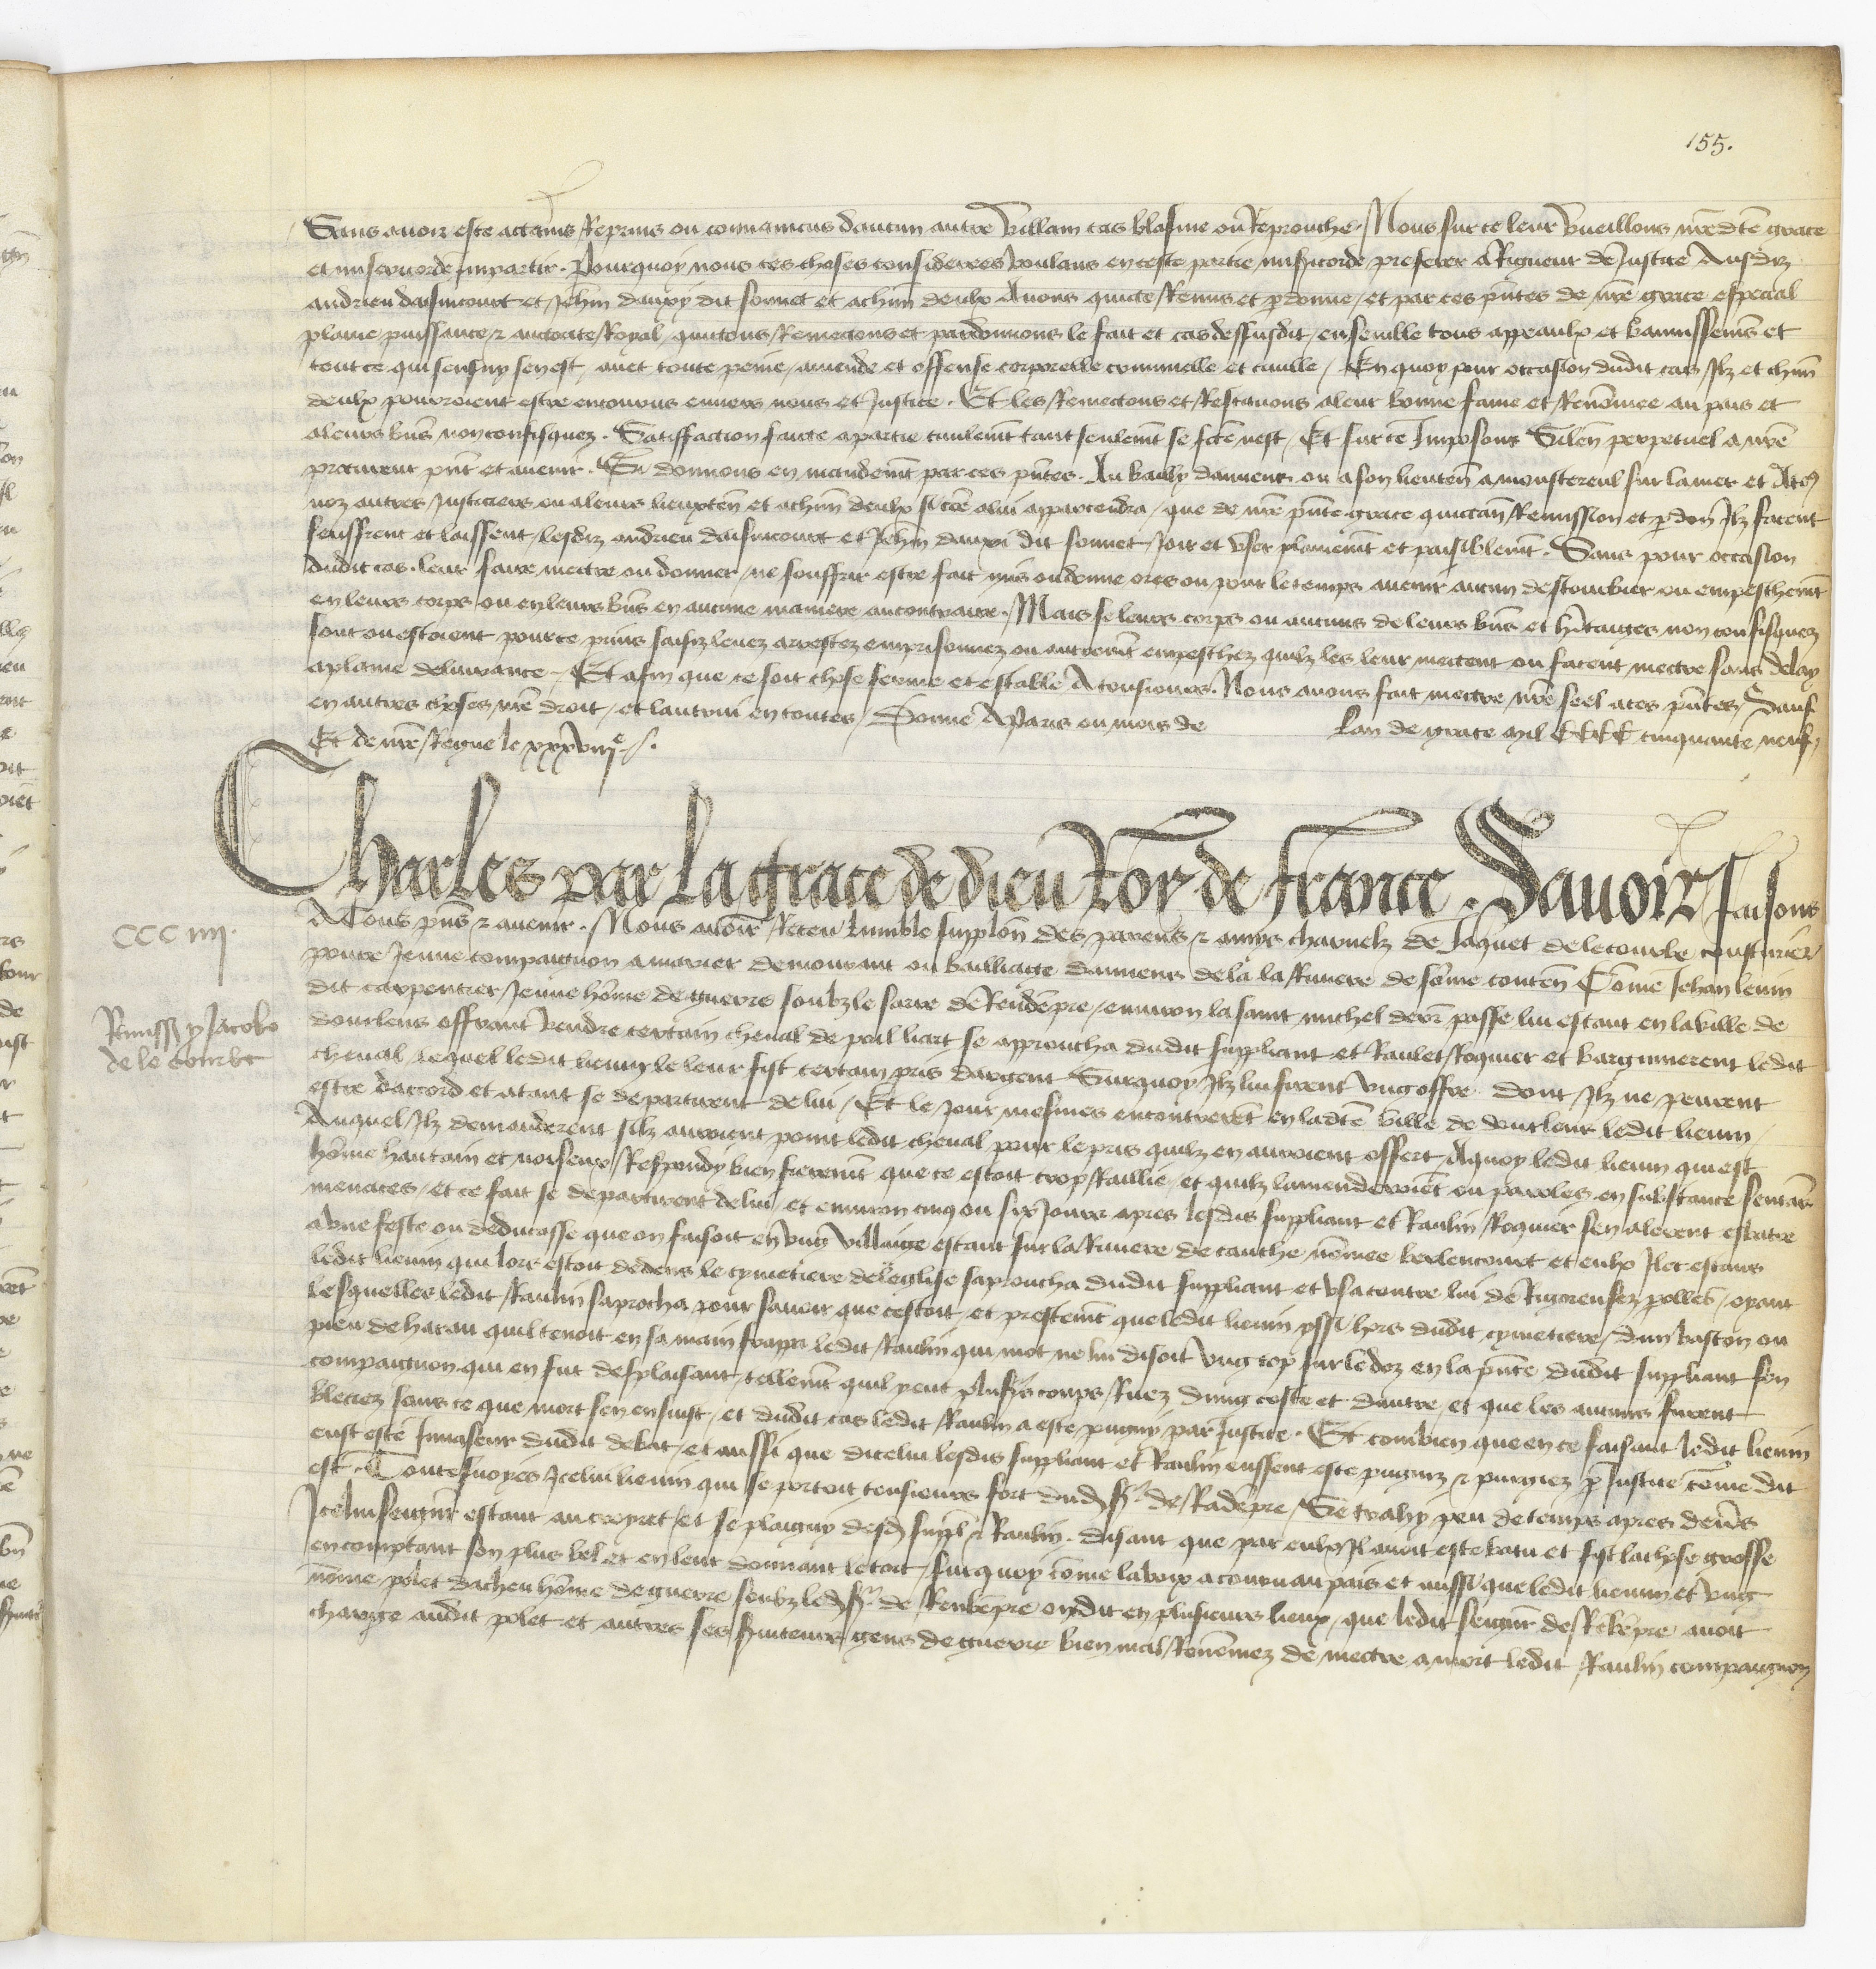 155.
Sans avoir este attains Reprins ou convaincus daucun autre villain cas blasme ou Reprouche. Nous sur ce leur vueillons nre dte grace
et misericorde impartir. Pourquoy nous ces choses considerees voulans en ceste partie misericorde preferer a Rigueur de Justice Ausdiz
andrieu daisincourt et Jehan dauxy dit sonnet et a chun deulx Avons quicte Remis et pdonne / et par ces pntes de nre grace especial
plaine puissance & auctorite Royal quictons Remectons et pardonnons le fait et cas dessusdit / ensemble tous appeaulx et bannissemens et
tout ce qui sensuy sen est / avec toute peine / amende et offense corporelle criminelle et civille / En quoy pour occasion dudit cas Ilz et chun
deulx pourroient estre encouruz envers nous et Justice. Et les Remectons et Restituons a leur bonne fame et Renommee au pais et
a leurs biens non confisquez. Satisffaction faicte a partie civilemt tant seulemt se fcte nest / Et sur ce Imposons Silen perpetuel a nre
procureur pnt et avenir. Si donnons en mandemt par ces pntes. Au bailly damiens ou a son lieuten a monstereul sur la mer et A to9
noz autres Justiciers ou a leurs lieuxten et a chun deulx si cõe a lui appartendra / que de nre pnte grace quictan Remission et pdon Ilz facent
seuffrent et laissent / lesdiz andrieu daisincourt et Jehan dauxi dit sonnet Joir et user plainemt et paisiblemt. Sans pour occasion
dudit cas leur faire mectre ou donner / ne souffrir estre fait mis ou donne ores ou pour le temps avenir aucun destourbier ou empeschemt
en leurs corps ou en leurs bns en aucune maniere au contraire. Mais se leurs corps ou aucuns de leurs bns et heritaiges non confisquez
sont ou estoient pour ce prins saisiz levez arrestez emprisonnez ou autremt empeschez quilz les leur mectent ou facent mectre sans delay
a plaine delivrance. Et afin que ce soit chose ferme et estable A tousiours. Nous avons fait mectre nre seel a ces pntes / Sauf
en autres choses nre droit / et lautruy en toutes / Donne A Paris ou mois de Lan de grace mil CCCC cinquante neuf /
Et de nre Regne le xxxviiie /.
Charles par la grace de dieu Roy de france. Savoir faisons
CCC iiii.
A Tous pns & avenir. Nous avoir Receu lumble supplon des parens & amys charnelz de Jaquet de le combe cousturier
Remissio p Jacobo
de le combe
povre Jeune compaignon a marier demourant ou bailliaige damiens dela la Riviere de somme conten Come Jehan lenin
dit carpentier / Jeune home de guerre soubz le sire de Rendepre / environ la saint michel derr passe lui estant en la ville de
dourlens offrant vendre certain cheval de poil liart se approucha dudit suppliant et Raulet Roquier et barguinerent ledit
cheval / lequel ledit lenin le leur fist certain pris dargent Surquoy Ilz lui firent ung offre dont Ilz ne peurent
estre daccord et atant se departirent de lui / Et le Jour mesmes encontrerent en ladte ville de dourlens ledit lenin /
Auquel Ilz demanderent silz auroient point ledit cheval pour le pris quilz en avoient offert Aquoy ledit lenin qui est
home haultain et noiseux / Respondy bien fierement que ce estoit trop Raillie / et quilz lamenderoient ou paroles en substance sentans
menaces / et ce fait se departirent de lui / et environ cinq ou six Jours apres lesdis suppliant et Raulin Roquier sen alerent esbatre
a une feste ou deducasse que on faisoit en ung villaige estant sur la Riviere de canche nommee berlencourt et eulx Ilec estans
ledit lenin qui lors estoit dedens le cymetiere de leglise saproucha dudit suppliant et usa contre lui de Rigoreuses polles / oyant
lesquelles ledit Raulin saprocha pour savoir que cestoit / et prestemt que ledit lenin yssi hors dudit cymetiere / dun baston ou
pieu de haran quil tenoit en sa main frappa ledit Raulin qui mot ne lui disoit ung cop sur le doz en la pnce dudit suppliant son
compaignon qui en fut desplaisant / tellemt quil y eut plusrs coups Ruez dung coste et dautre / et que les aucuns furent
bleciez sans ce que mort sen ensuist / et dudit cas ledit Raulin a este pugny par Justice. Et combien que en ce faisant ledit lenin
eust este Invaseur dudit debat / et aussi que dicelui lesdis suppliant et Raulin eussent este pugniz & purgiez p Justice come dit
est. Toutesvoyes Icelui lenin qui se portoit tousiours fort dud Sr de Radepre / Se trahy peu de temps apres devs
Icelui seignr estant au croyret / et se plaigny desd suppl & Raulin. disant que par eulx Il avoit este batu et fist la chose grosse
en comptant son plus bel et en leur donnant le tort / surquoy come la voix a couru au pais et aussi que ledit lenin et ung
nome polet dacheu home de guerre soubz led Sr de Renbepre ont dit en plusieurs lieux / que ledit seignr de Rebepre avoit
charge audit polet et autres ses serviteurs gens de guerre bien mal Renommez de mectre a mort ledit Raulin compaignon